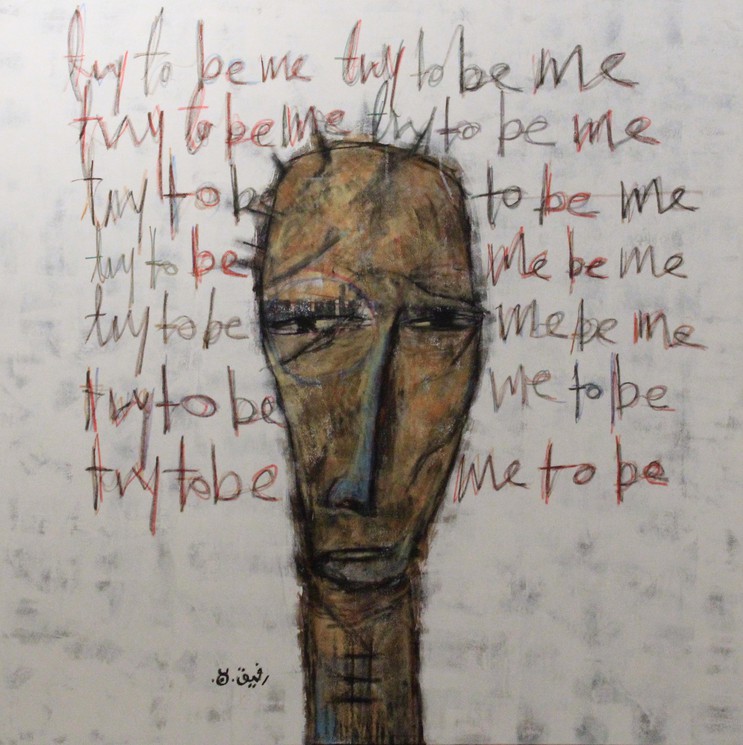 try to be me try to be me
try to be me try to be me
try to be to be me
try to be me be me
try to be me be me
try to be me to be
try to be me to be
رفيق.